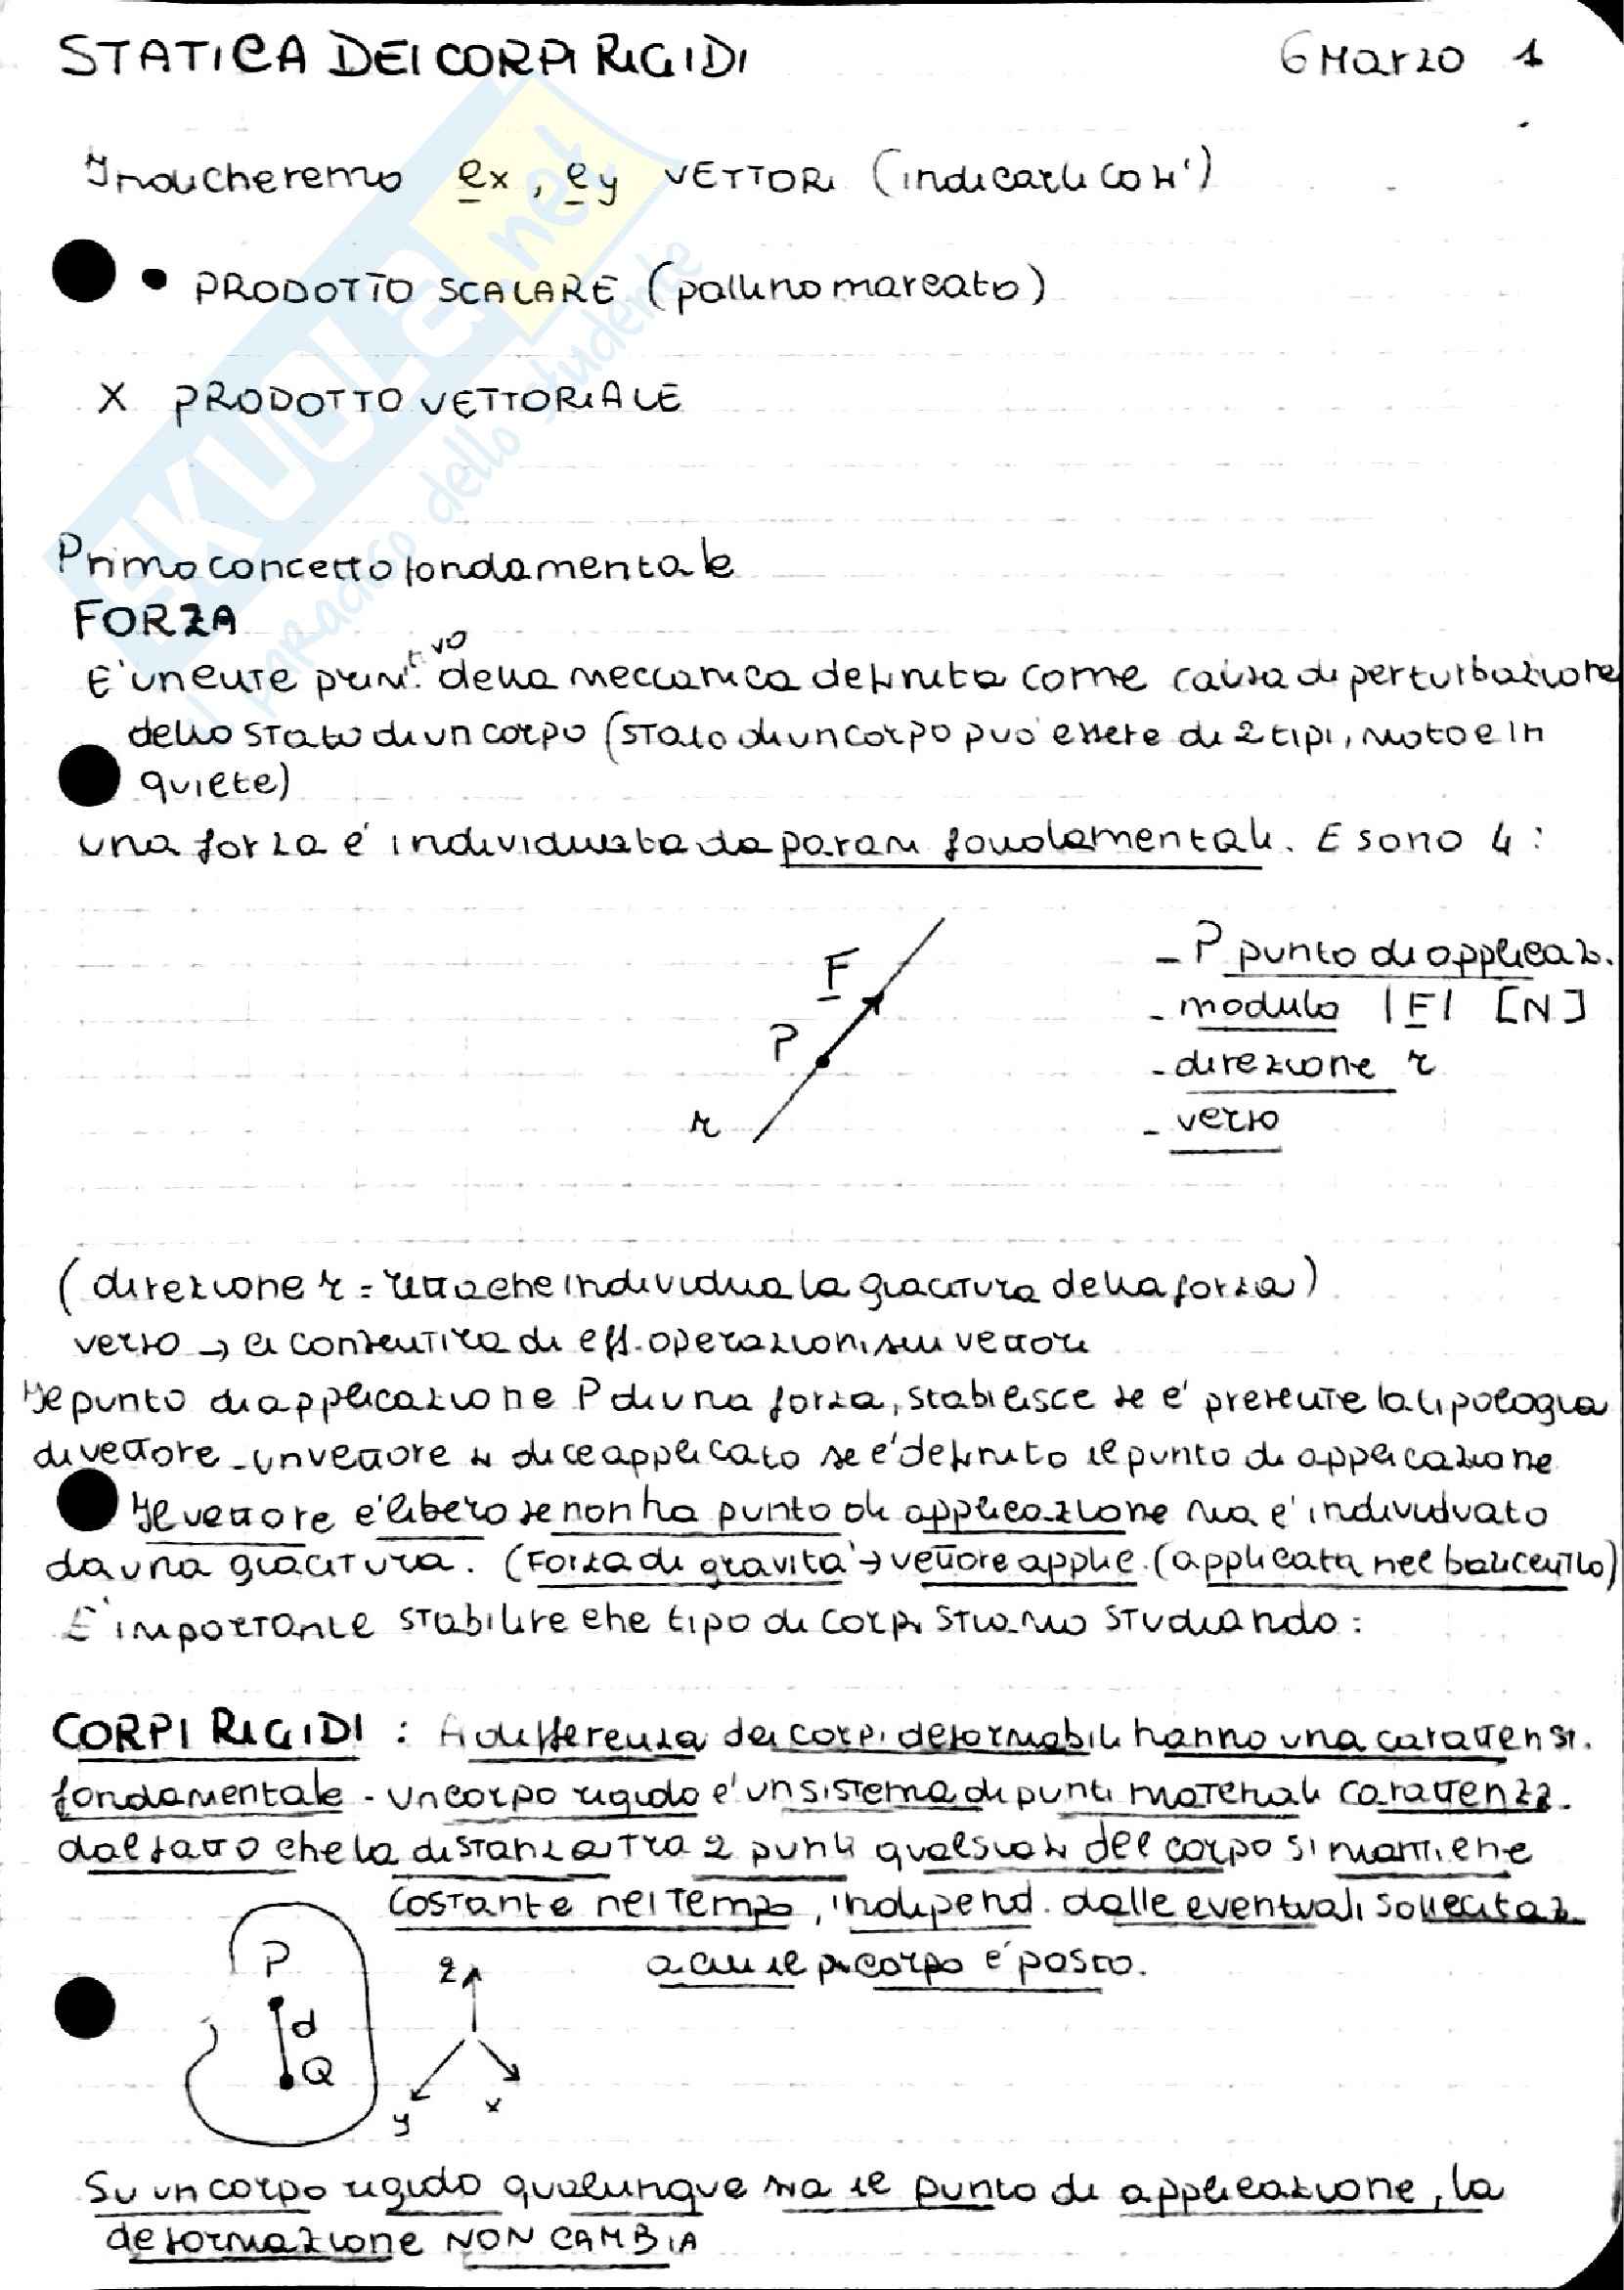 STATICA DEI CORPI RIGIDI 6 Marzo 1
Indicheremo ex, ey VETTORI (indicarli con')
• PRODOTTO SCALARE (pallino marcato)
X PRODOTTO VETTORIALE
Primo concetto fondamentale
FORZA
E' un ente primitivo della meccanica definita come causa di perturbazione
dello stato di un corpo (stato di un corpo puo' essere di 2 tipi, moto e in
quiete)
una forza e' individuata da param fondamentali. E sono 4:
F
P
r
- P punto di applicaz.
- modulo |F| [N]
- direzione r
- verso
(direzione r = retta che individua la giacitura della forza)
verso → ci consentira di eff. operazioni sui vettori
Il punto di applicazione P di una forza, stabilisce se e' presente la tipologia
di vettore - un vettore si dice applicato se e' definito il punto di applicazione
Il vettore e' libero se non ha punto di applicazione ma e' individuato
da una giacitura. (Forza di gravita' → vettore applic. (applicata nel baricentro)
E' importante stabilire che tipo di corpi stiamo studiando:
CORPI RIGIDI : A differenza dei corpi deformabili hanno una caratterist.
fondamentale - un corpo rigido e' un sistema di punti materiali caratterizz.
dal fatto che la distanza tra 2 punti qualsiasi del corpo si mantiene
costante nel tempo, independ. dalle eventuali sollecitaz
a cui il corpo e' posto.
P
d
Q
z
y
x
Su un corpo rigido qualunque sia il punto di applicazione, la
deformazione NON CAMBIA
SKUOLA.net
il paradiso dello studente